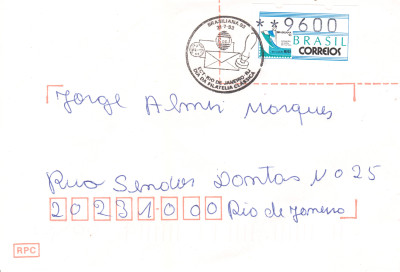 BRASILIANA 93
**9600
BRASIL
CORREIOS
ECT-RIO DE JANEIRO, RJ
DIA DA FILATELIA CLÁSSICA
Jorge Marques
Rua Dantas Nº 25
20231-000 Rio de Janeiro
RPC